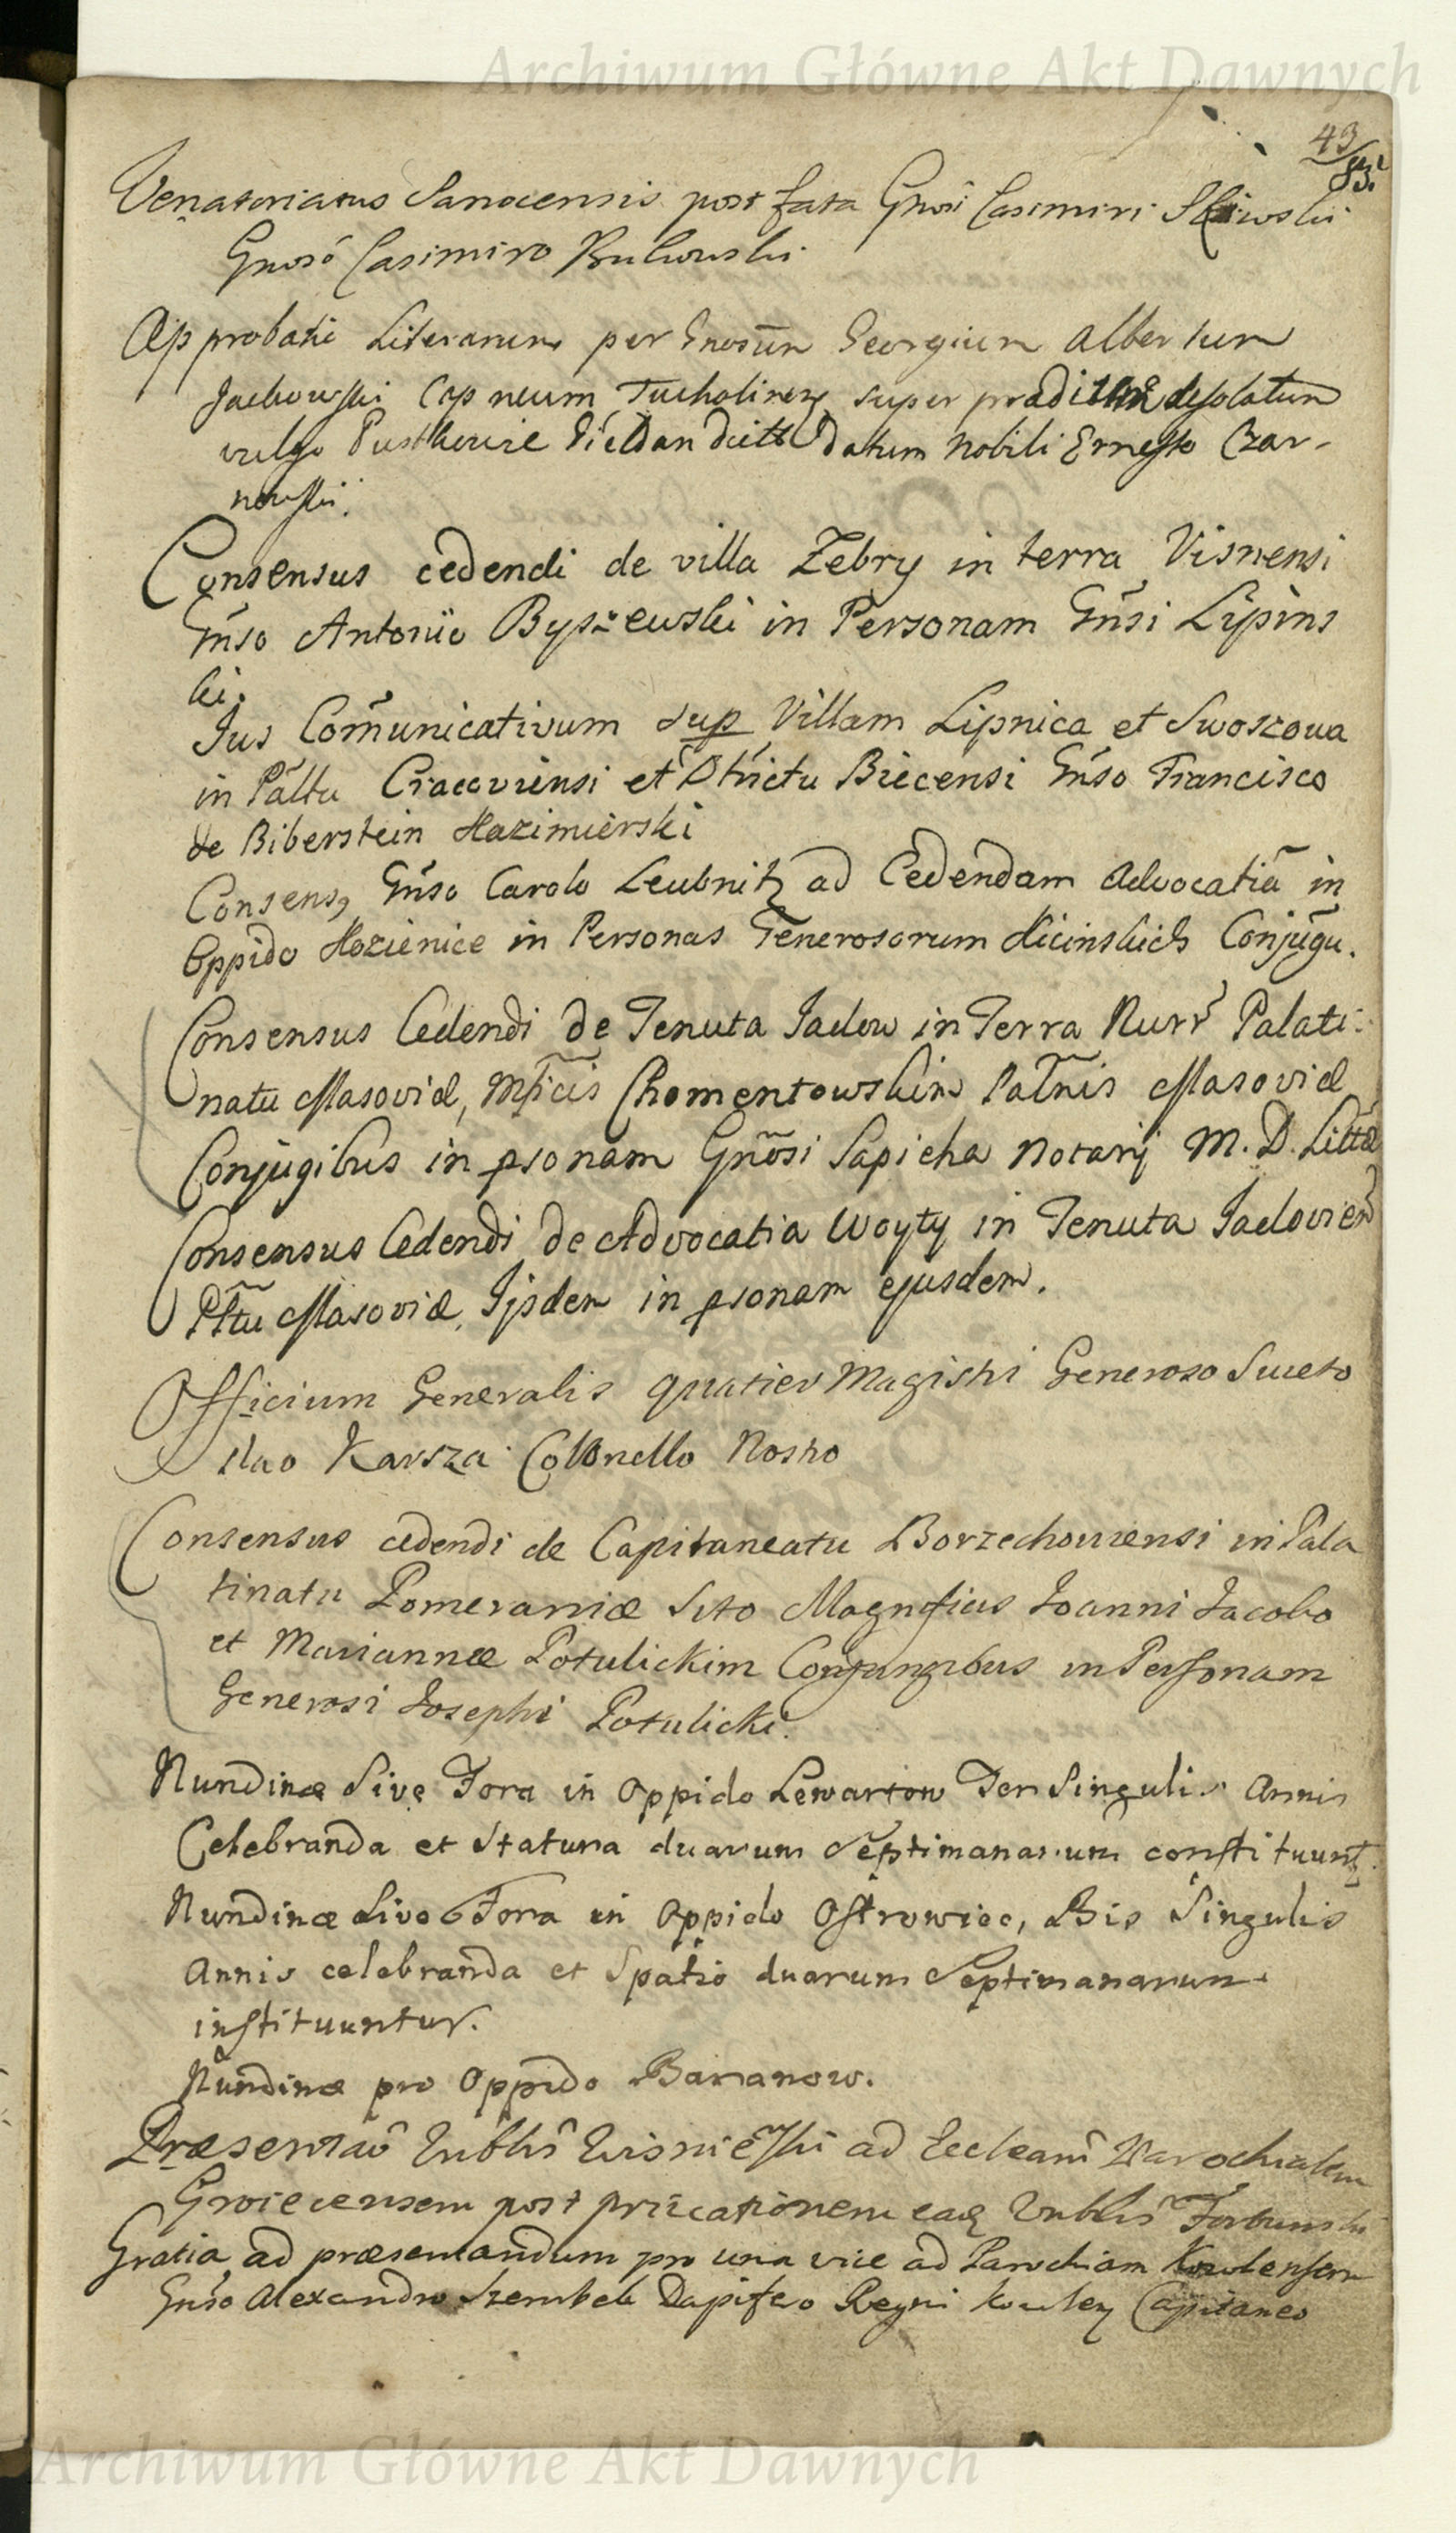 Archiwum Główne Akt Dawnych
43
83.
Venatoriatus Sanocensis post fata Gnosi Casimiri
Gnoso Casimiro Bukowski
Approbatio Literarum per Gnosum Georgium Albertum
Capneum Tucholiensem super prædium desolatum
vulgo datum Nobili Ernesto Czar-
newski.
Consensus cedendi de villa Zebry in terra Visnensi
Gnso Antonio Byszewski in Personam Gnsi Lipins
ki.
Jus Comunicativum sup Villam Lipnica et Swoszowa
in Paltu Cracoviensi et Dstrictu Biecensi Gnso Francisco
de Biberstein Kazimierski
Consens9 Gnso Carolo Leubnitz ad Cedendam Advocatiã in
Oppido Kozienice in Personas Generosorum Kicinskich Conjugu.
Consensus Cedendi de Tenuta Jadow in Terra Nurr Palati:
natu Masoviæ, Mficis Chomentowskim Patnis Masoviæ
Conjugibus in psonam Gnosi Sapieha Notarij M. D. Littæ
Consensus Cedendi de Advocatia Woyty in Tenuta Jadovien
Pttu Masoviæ, Ijsdem in psonam ejusdem.
Officium Generalis Quatier Magistri Generoso Sueto
slao Karsza Collonello Nostro
Consensus cedendi de Capitaneatu Borzechoviensi in Pala
tinatu Pomeraniæ Sito Magnificis Joanni Jacobo
et Mariannæ Potulickim Conjungibus in Personam
Generosi Josephi Potulicki.
Nundinæ Sive Fora in Oppido Lewartow Ter Singulis Annis
Celebranda et Statura duarum Septimanarum constituunt
Nundinæ Sive Fora in Oppido Ostrowiec, Bis Singulis
Annis celebranda et Spatio duarum Septimanarum
instituuntur.
Nundinæ pro Oppido Baranow.
Præsentaō Vnblis Wisniewski ad Eccleam Parochialem
Groiecensem post Vnblis
Gratia ad præsentandum pro una vice ad Parochiam Kowlensem
Gnso Alexandro Szembek Dapifero Regni Capitaneo
Archiwum Główne Akt Dawnych